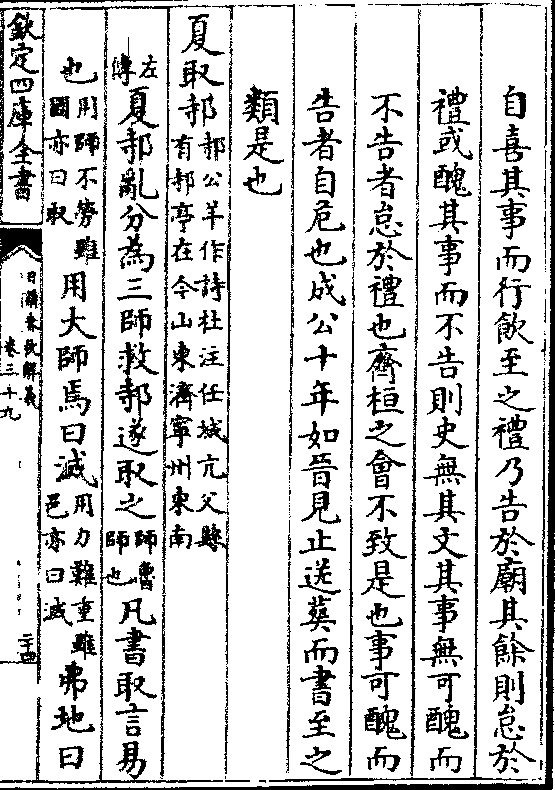 自喜其事而行飲至之禮乃告於廟其餘則怠於
禮或醜其事而不告則史無其文其事無可醜而
不告者怠於禮也齊桓之會不致是也事可醜而
告者自危也成公十年如晉見止送葬而書至之
類是也
夏取邿邿公羊作詩杜注任城亢父縣有邿亭在今山東濟寧州東南
左傳夏邿亂分為三師救邿遂取之師魯師也凡書取言易
也用師不勞雖國亦曰取用大師焉曰滅用力難重雖邑亦曰滅弗地曰
欽定四庫全書
日講春秋解義
卷三十九
二十四